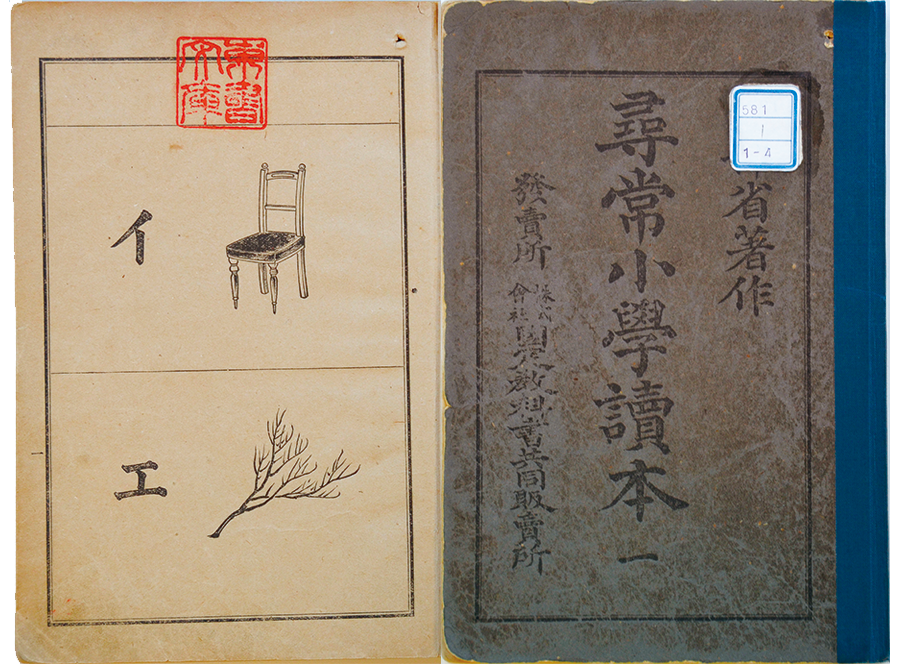 581
1
1-4
省著作
尋常小學讀本 一
發賣所
株式
會社
國定教科書共同販賣所
東書
文庫
イ
エ